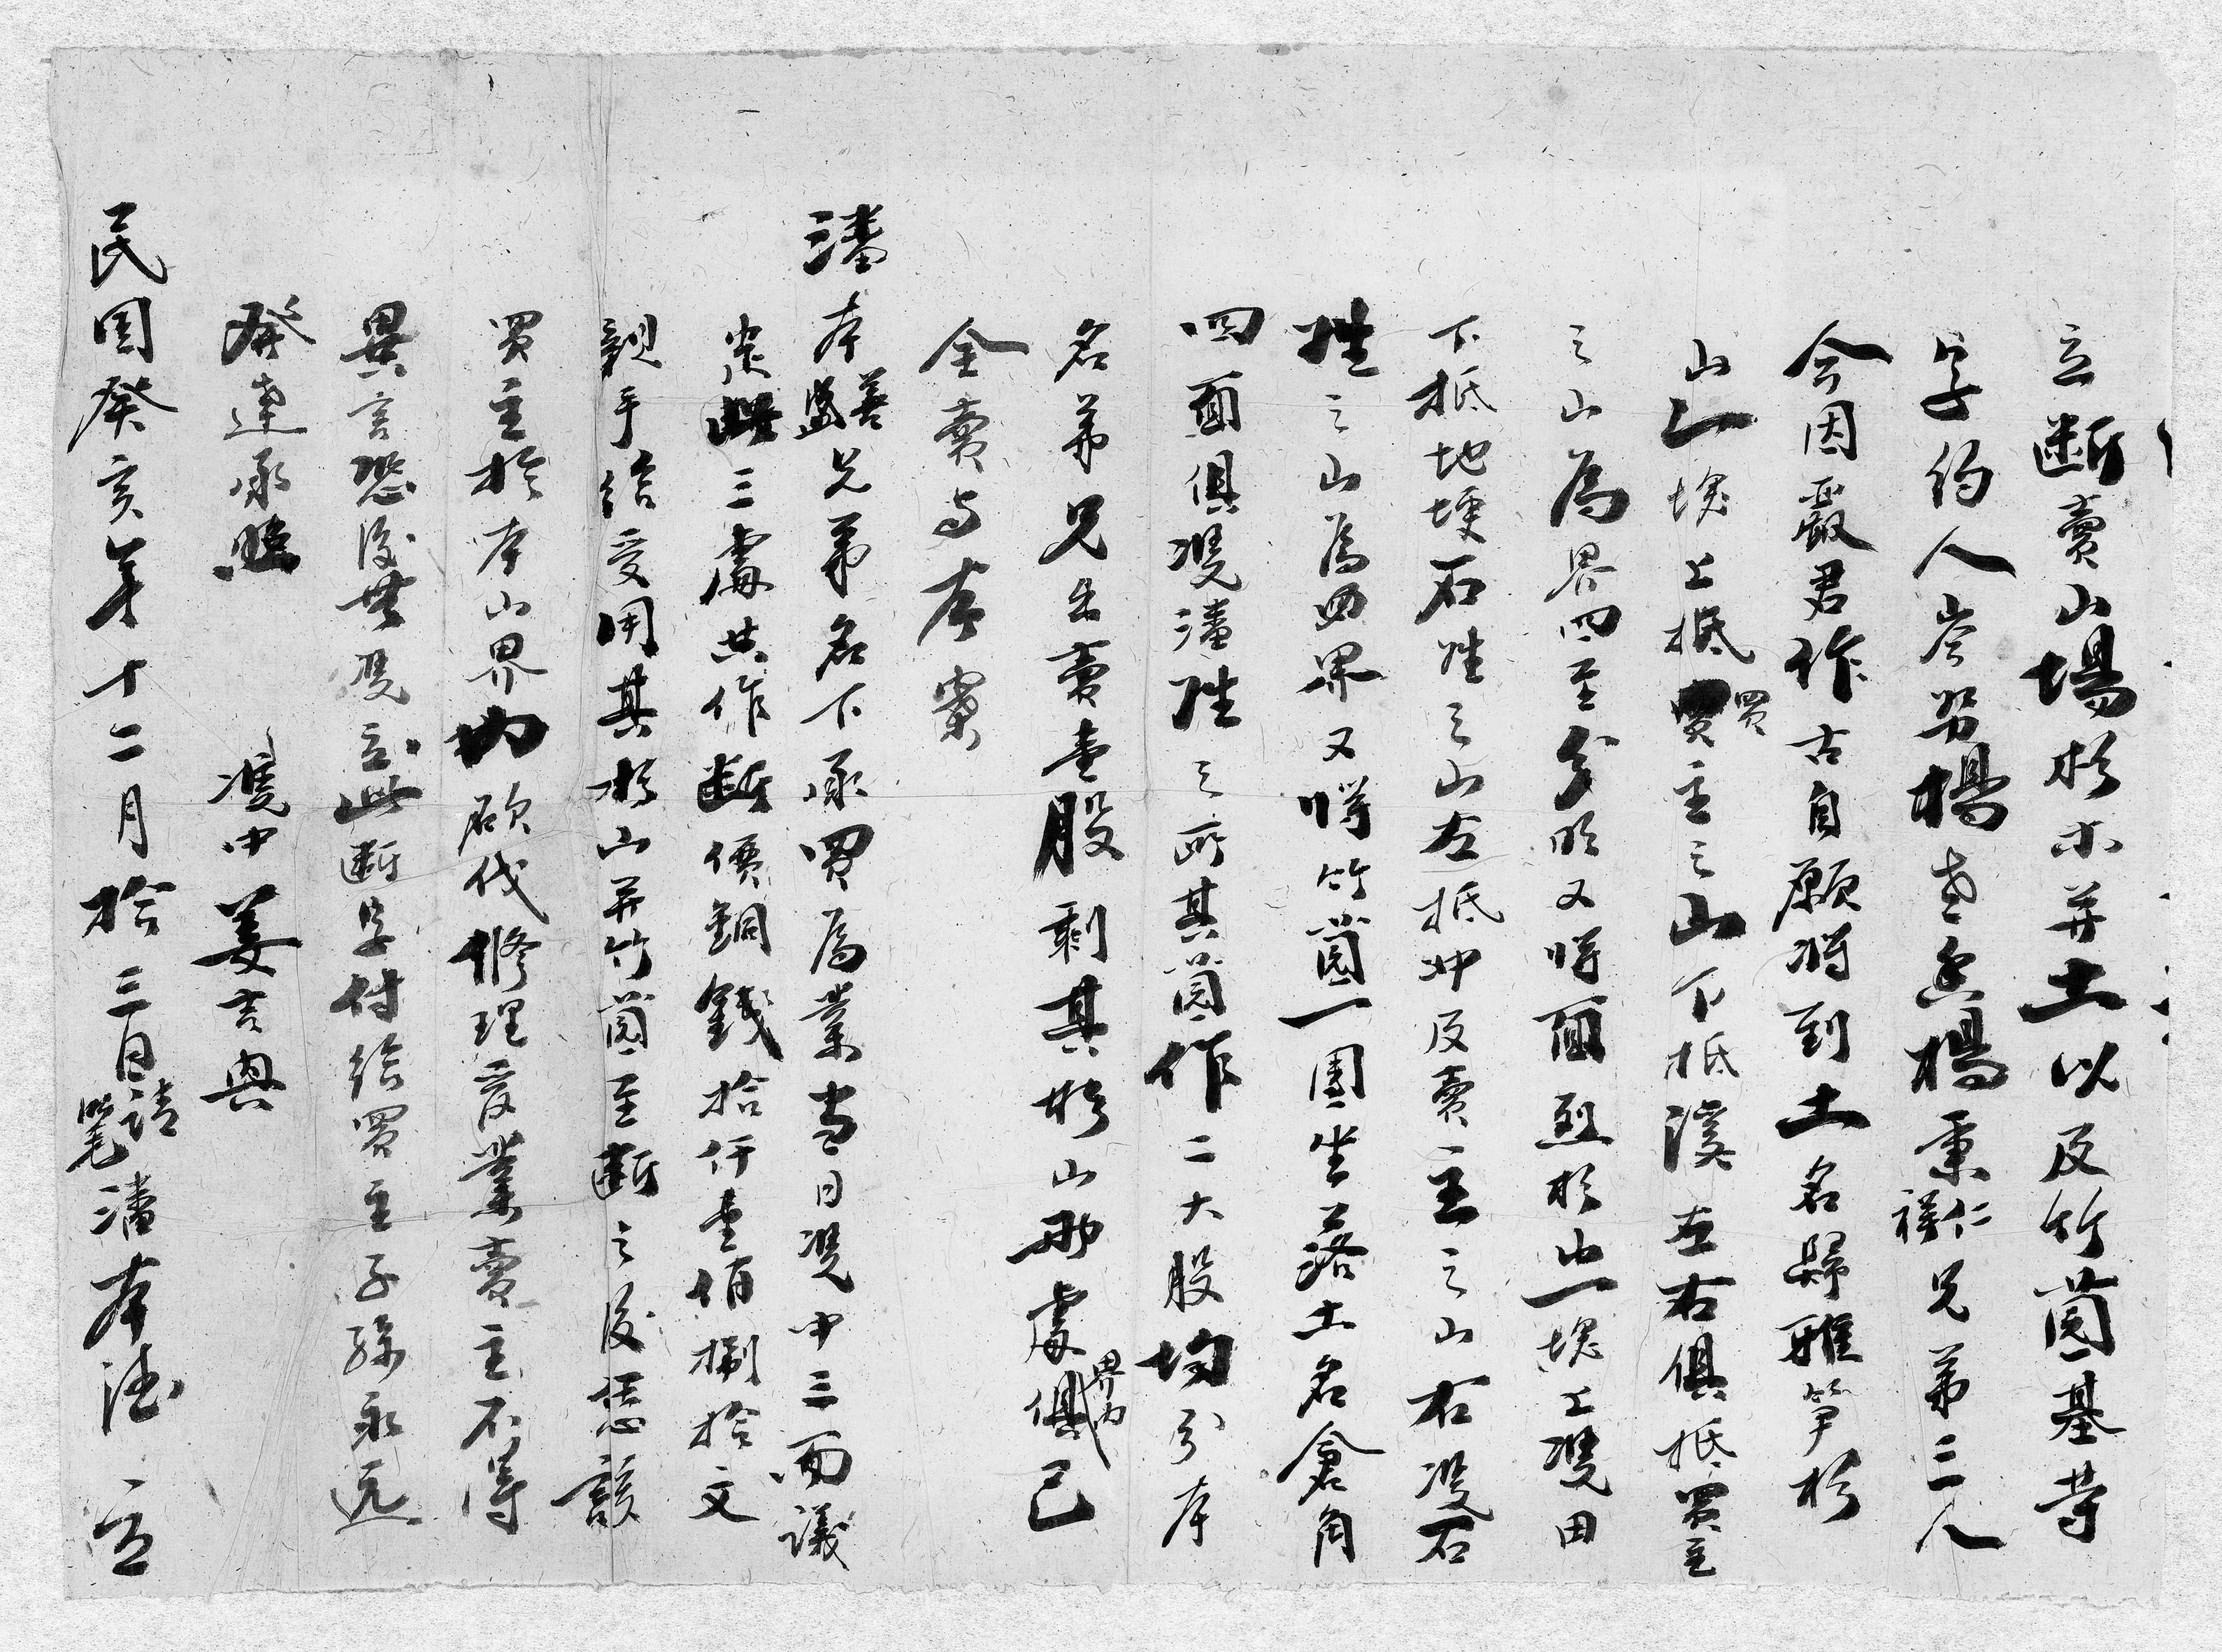 立斷賣山場杉木并土以及竹菌基等
字约人岑努楊老包楊秉仁祥兄弟三人
今因嚴君作古自願將到土名歸雅笋杉
山一塊上抵買主之山下抵溪左右俱抵買主
之山為界四至分明又將面烈杉山一塊上凴田
下抵地埂石姓之山左抵冲反賣主之山右凴石
姓之山為界又將竹菌一團坐落土名倉角
四面俱凴潘姓之所其菌作二大股均分本
名弟兄出賣壹股剩其杉山两處界内俱已
全賣与本寨
潘本善盛兄弟名下承買為業當日凴中三面議
定此三處共作斷價銅錢拾仟壹佰捌拾文
親手结受用其杉山并竹菌至斷之後憑該
買主於本山界内砍伐修理管業賣主不得
異言恐後無凴立此斷字付给買主子孫永远
發達承照
凴中姜吉典
民国癸亥年十二月拾三日請筆潘本德 立